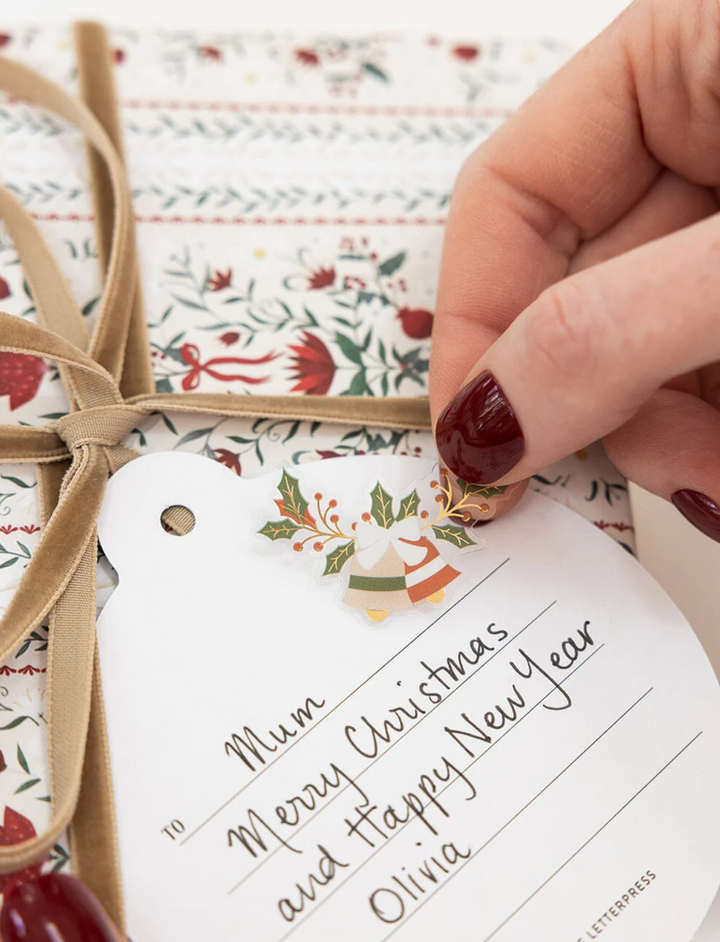 TO Mum
Merry Christmas
and Happy New Year
Olivia
LETTERPRESS